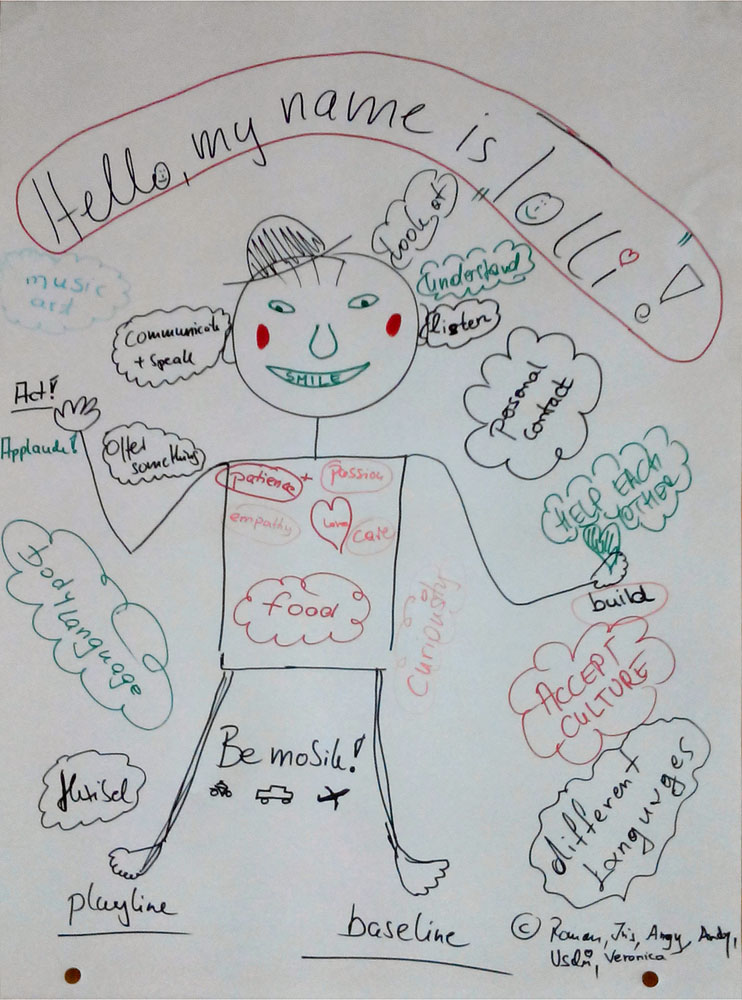 Hello, my name is lolli!
Look at
understand
listen
music
art
communicate
+ speak
SMILE
personal
contact
Act!
Applaude!
Offer
something
patience + passion
empathy
Love
care
HELP EACH
OTHER
build
body language
food
Curiousity
ACCEPT
CULTURE
Be mobile!
different
Languages
playline
baseline
© Roman, Iris, Angy, Andy,
Veronica